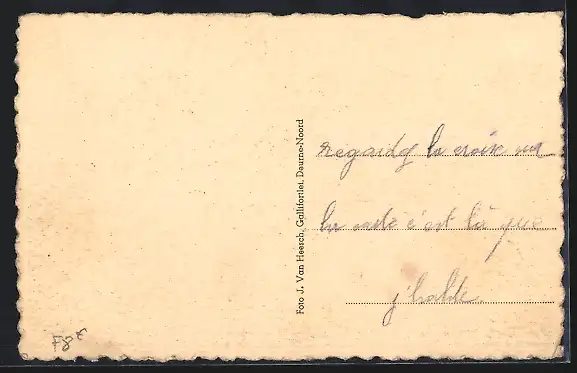 Foto J. Van Heesch, Gallifortlei, Deurne-Noord
regardez la croix sur
la carte c'est là que
j'habite
F8€